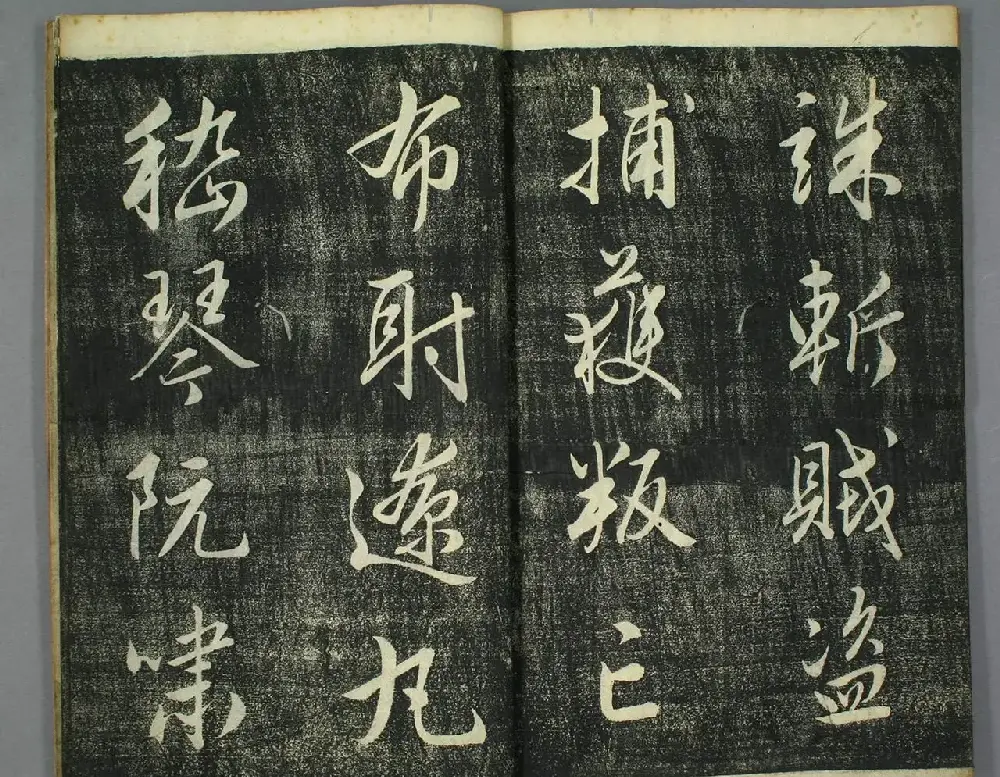 誅斬賊盗
捕獲叛亡
布射遼丸
嵇琴阮嘯